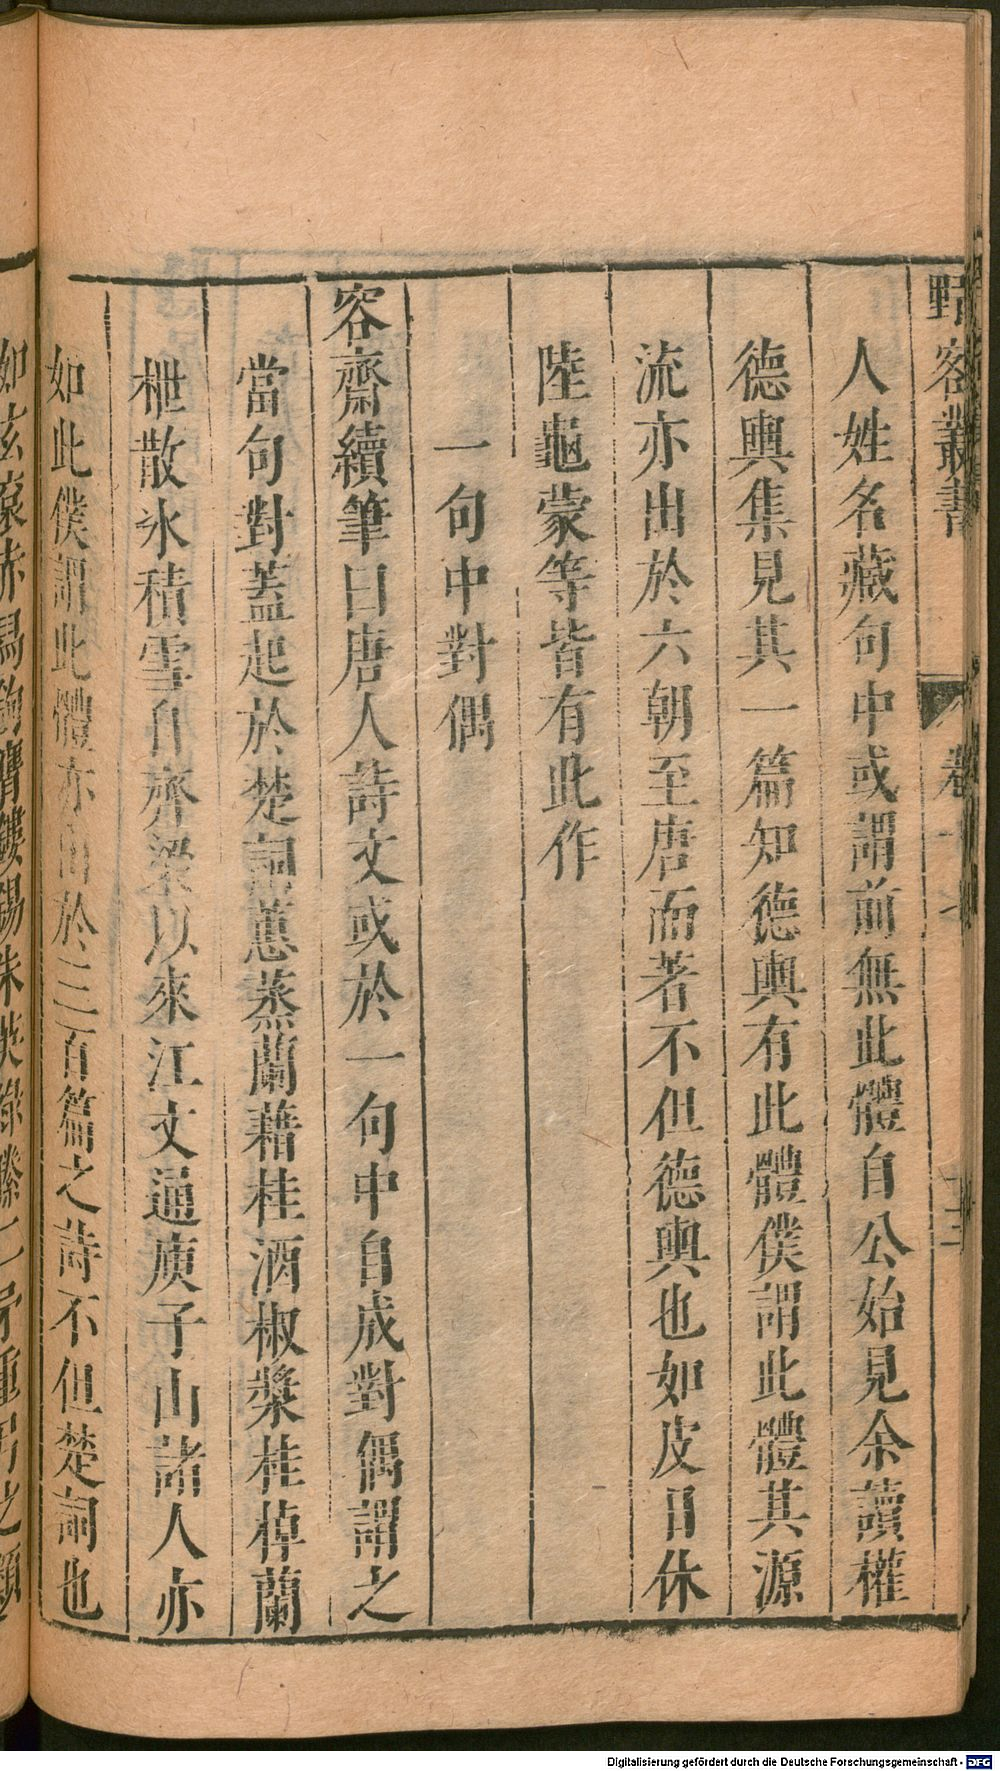 野客叢書 卷十 三
人姓名藏句中或謂前無此體自公始見余讀權
德輿集見其一篇知德輿有此體僕謂此體其源
流亦出於六朝至唐而著不但德輿也如皮日休
陸龜蒙等皆有此作
一句中對偶
容齋續筆曰唐人詩文或於一句中自成對偶謂之
當句對蓋起於楚詞蕙蒸蘭藉桂酒椒漿桂棹蘭
枻散氷積雪自齊梁以來江文通庾子山諸人亦
如此僕謂此體亦出於三百篇之詩不但楚詞也
如玄袞赤舄鉤膺鏤錫朱英綠縢二矛重弓之類
Digitalisierung gefördert durch die Deutsche Forschungsgemeinschaft - DFG